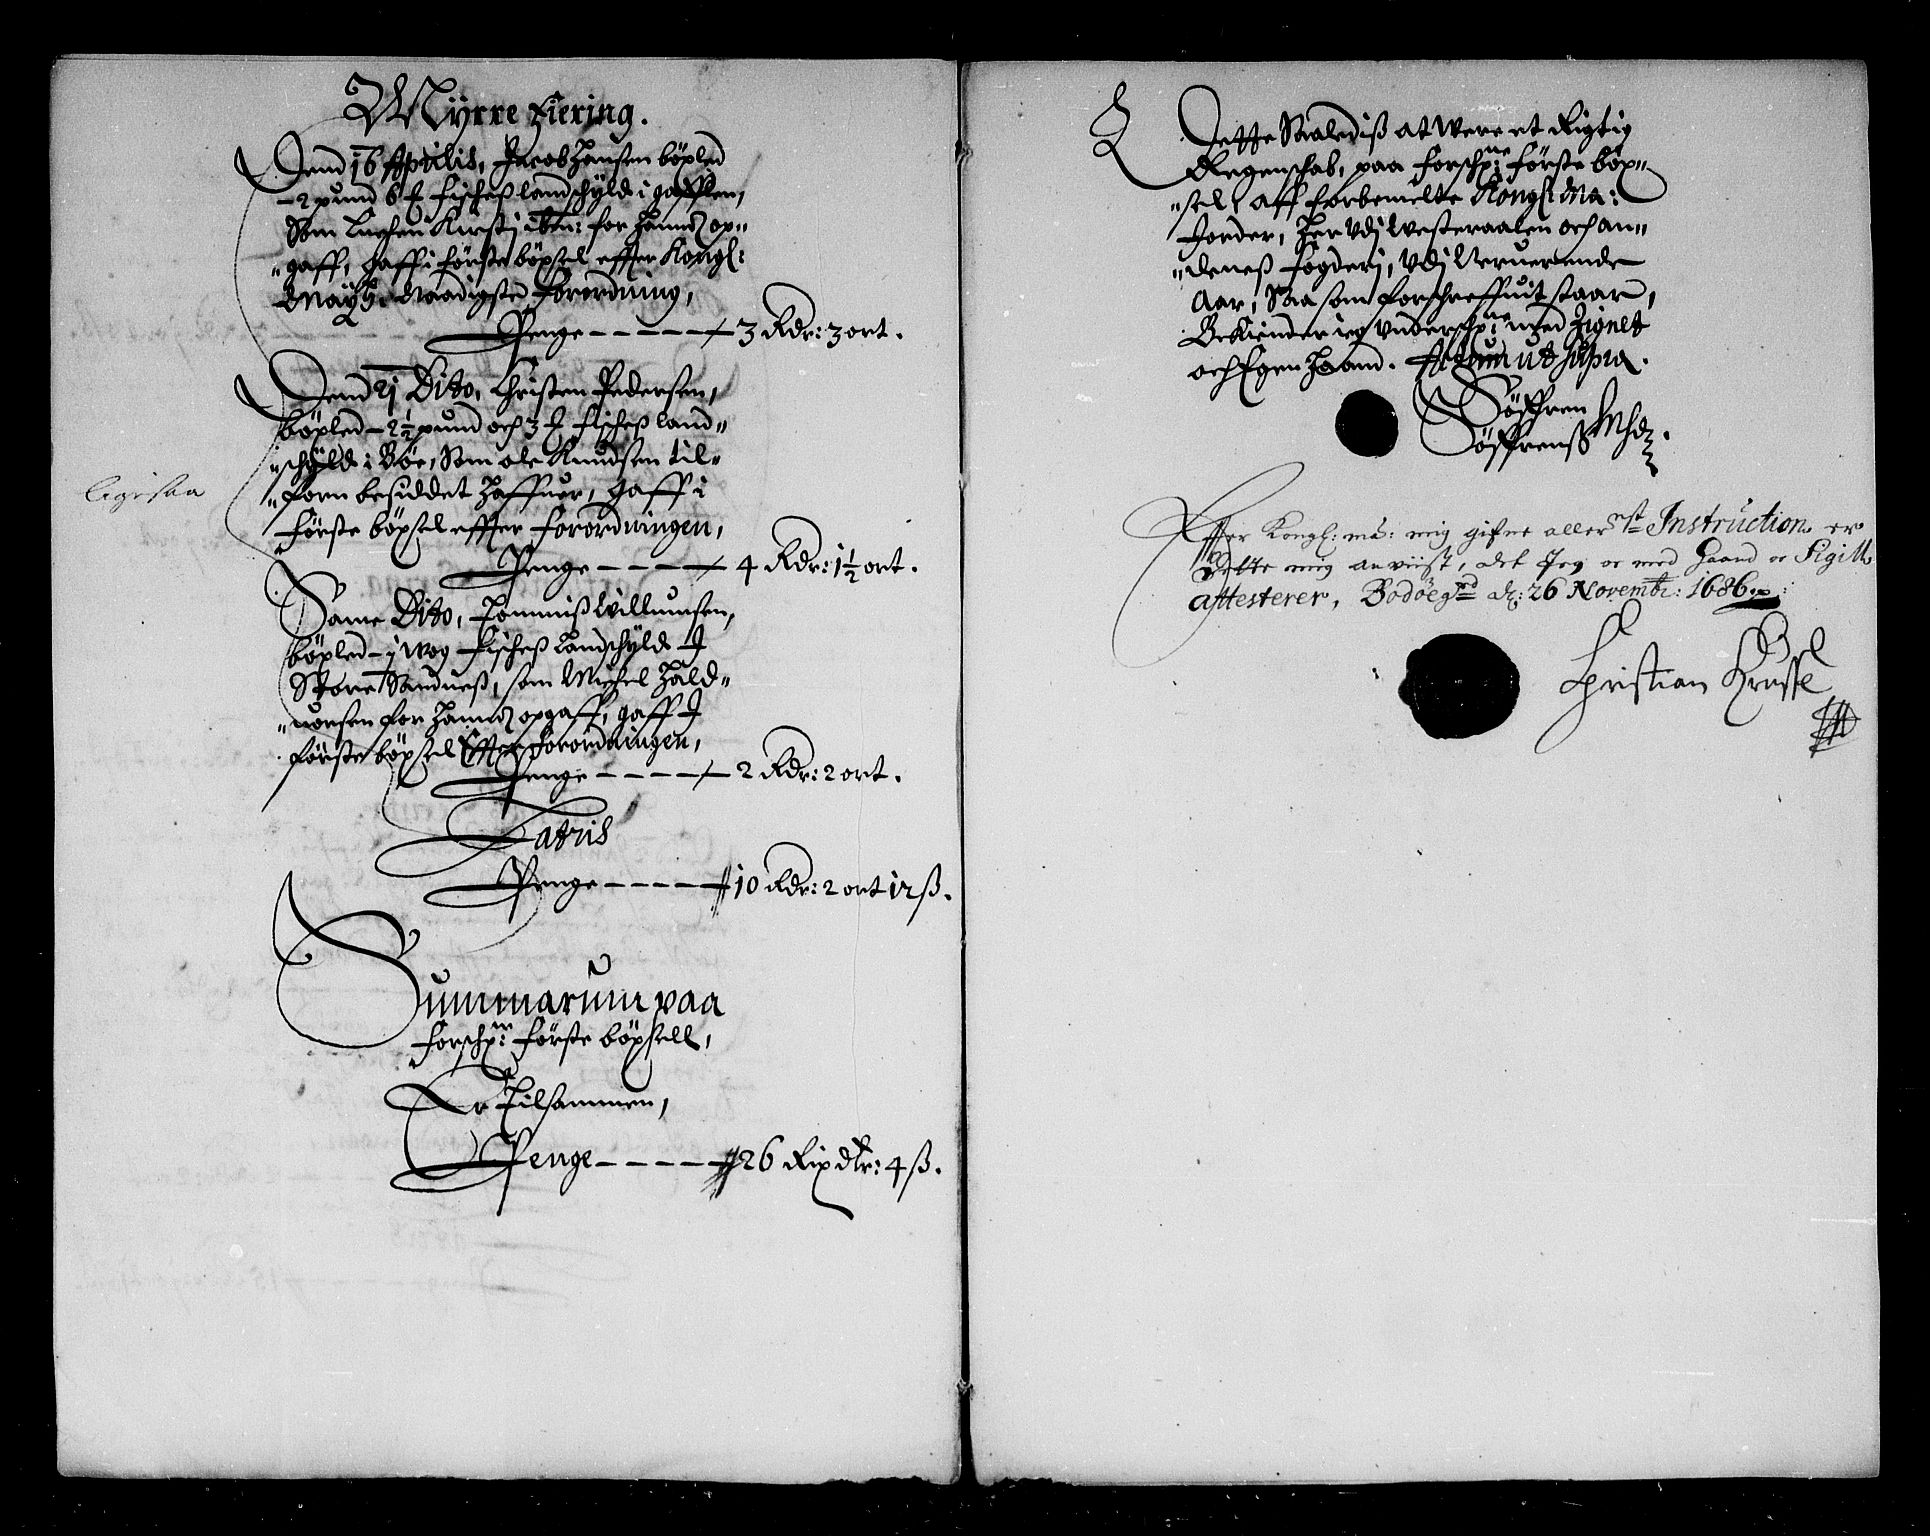 Myrre Fiering.
Dend 16 Aprilis, Jacob Hansen böxled
- 2 pund 6 Fischeß landschyld i Gafflen,
Som Kirstj ibm: for Hannd op-
gaff, gaff i förste böxsel effter Kongl:
Maytz. Naadigste forordning,
Penge - - - - - 3 Rdr: 3 ort.
Dend 21 Dito, Christen Pedersen,
böxled - 2½ pund och 3 Fischeß land-
schyld i Böe, Som ole Knudsen til-
forn besiddet Haffuer, gaff i
förste böxsel effter forordningen,
ligesaa
Penge - - - - 4 Rdr: 1½ ort.
Same Dito, Tommiß Willumsen,
böxled - j wog Fischeß Landschyld I
Store Sandneß, som Michel Hald-
uorsen for Hannd opgaff, gaff I
förste böxsel Effter forordningen,
Penge - - - - 2 Rdr: 2 ort.
Latris
Penge - - - - 10 Rdr: 2 ort 12 ß.
Summarum paa
forschr: förste böxsell,
Er Tilsammen,
Penge - - - - 26 Rixdlr: 4 ß.
Dette Saalediß at were et Rigtig
Regenschab, paa forschr: förste böx-
sel, aff forbemelte Kongl: Ma:
Jorder, Her vdj Westeraalen och An-
deneß fogderj, vdj Neruerende
Aar, Saa som forschreffuit staar,
Bekiender ieg vnderschr: med Zignet
och Egen Haand. Actum ut supra.
Söffren
Söffrenß
Effter Kongl: ma: mig gifne aller nst Instruction er
dette mig anviist, det Jeg er med Haand oc Sigill
attesterer, Bodöegrd d: 26 Novembr: 1686
Christian Kruse